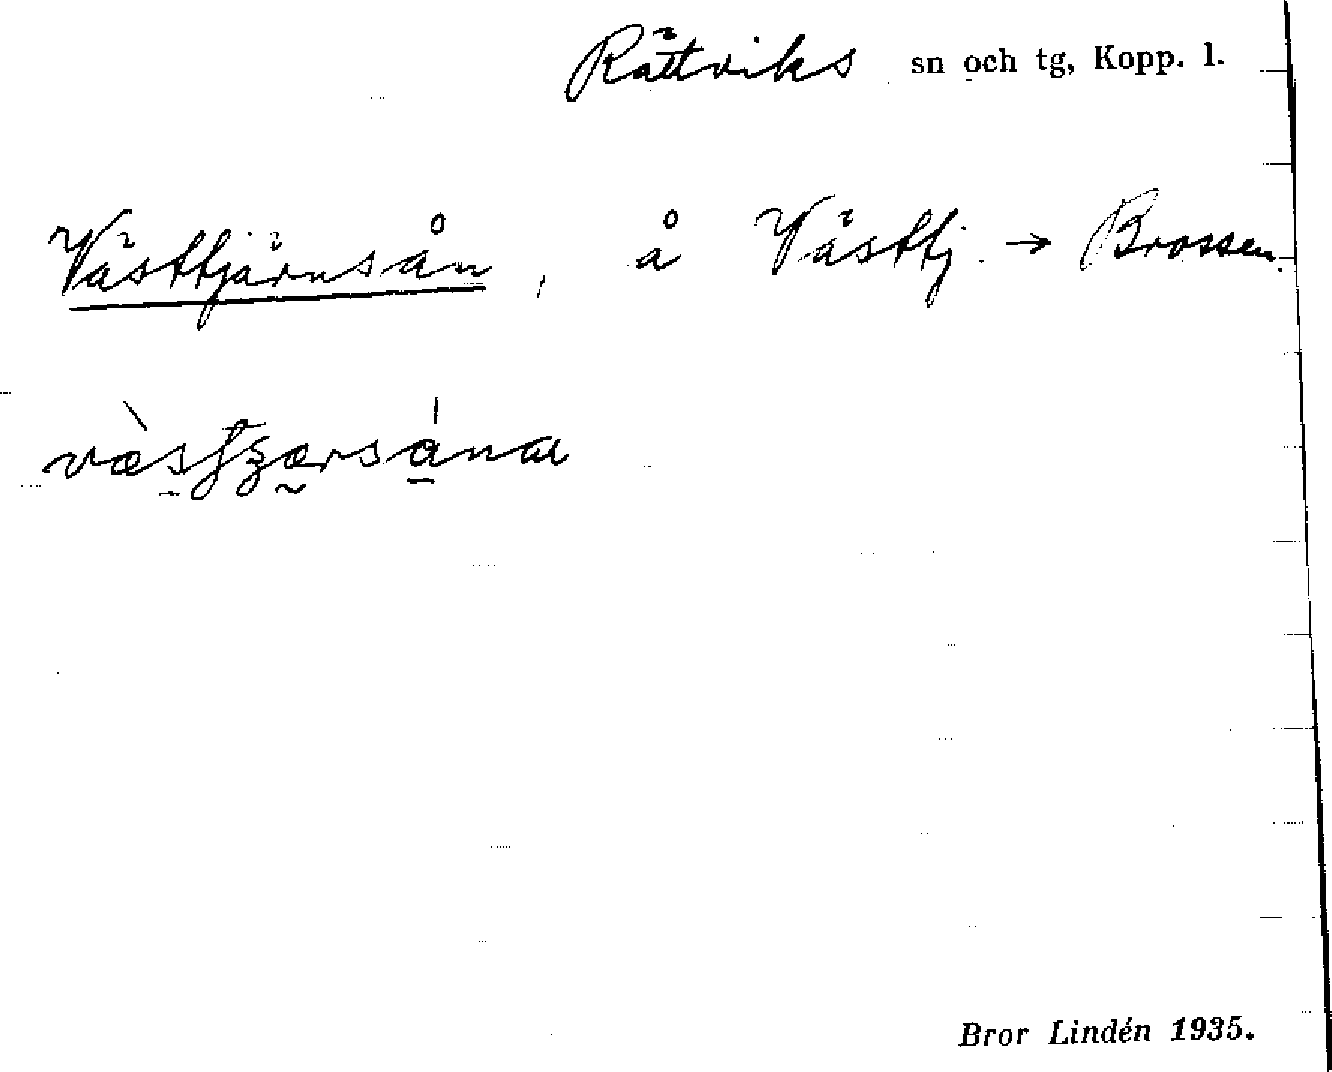 Rättviks sn och tg, Kopp. l.
Västtjärnsån, å Västtj. → Brossen.
Bror Lindén 1935.